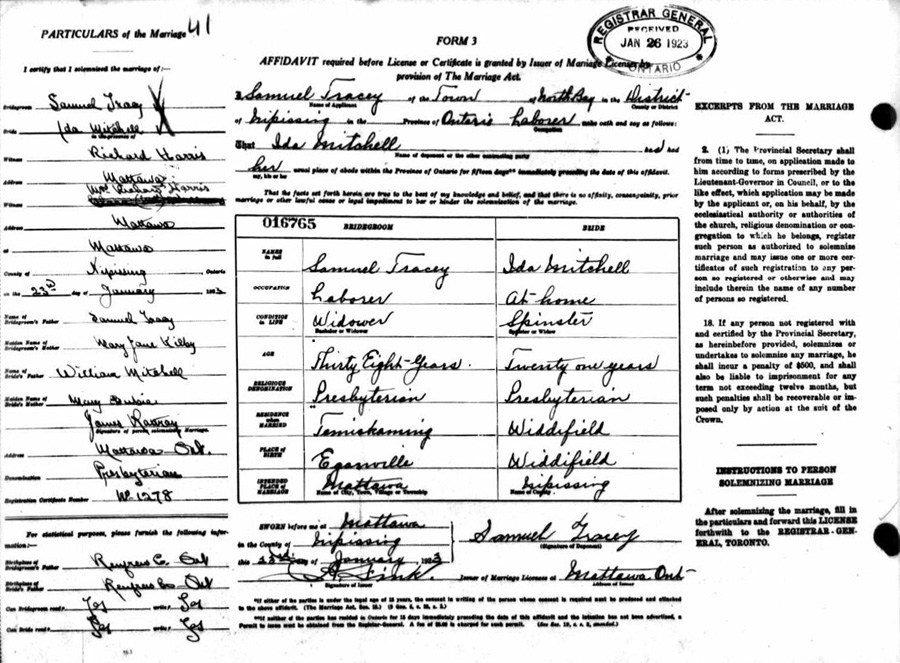 PARTICULARS of the Marriage 41
I certify that I solemnized the marriage of:—
Bridegroom Samuel Tracy
Bride Ida Mitchell
in the presence of
Witness Richard Harris
Address Mattawa
Witness Mrs Richard Harris
Address Mattawa
at Mattawa
County of Nipissing Ontario
on the 23rd day of January 1923
Name of Bridegroom's Father Samuel Tracy
Maiden Name of Bridegroom's Mother Mary Jane Kilby
Name of Bride's Father William Mitchell
Maiden Name of Bride's Mother Mary
James
Signature of person solemnizing Marriage.
Address Mattawa Ont.
Denomination Presbyterian
Registration Certificate Number No 1278
For statistical purposes, please furnish the following information:—
Birthplace of Bridegroom's Father Renfrew Co. Ont
Birthplace of Bride's Father Renfrew Co Ont
Can Bridegroom read? Yes write? Yes
Can Bride read? Yes write? Yes
FORM 3
REGISTRAR GENERAL
RECEIVED
JAN 26 1923
ONTARIO
AFFIDAVIT required before License or Certificate is granted by Issuer of Marriage Licenses by
provision of The Marriage Act.
I, Samuel Tracey of the Town of North Bay in the District
Name of Applicant County or District
of Nipissing in the Province of Ontario Laborer make oath and say as follows:
Occupation
That Ida Mitchell had
Name of deponent or the other contracting party
her usual place of abode within the Province of Ontario for fifteen days** immediately preceding the date of this affidavit.
my, his or her
That the facts set forth herein are true to the best of my knowledge and belief, and that there is no affinity, consanguinity, prior
marriage or other lawful cause or legal impediment to bar or hinder the solemnization of the marriage.
016765 BRIDEGROOM BRIDE
NAMES in full Samuel Tracey Ida Mitchell
OCCUPATION Laborer At-home
CONDITION IN LIFE Widower Spinster
Bachelor or Widower Spinster or Widow
AGE Thirty Eight-Years. Twenty one years
RELIGIOUS DENOMINATION Presbyterian Presbyterian
RESIDENCE when MARRIED Temiskaming Widdifield
PLACE OF BIRTH Eganville Widdifield
INTENDED PLACE OF MARRIAGE Mattawa Nipissing
Name of City, Town, Village or Township Name of County
SWORN before me at Mattawa
in the County of Nipissing
this day of January 1923
Signature of Issuer
Samuel Tracey
(Signature of Deponent)
Issuer of Marriage Licenses at Mattawa Ont
Address of Issuer
*If either of the parties is under the legal age of 18 years, the consent in writing of the person whose consent is required must be produced and attached
to the above affidavit. (The Marriage Act, Sec. 15.)
**If neither of the parties has resided in Ontario for 15 days immediately preceding the date of this affidavit and the intention has not been advertised, a
Permit to issue must be obtained from the Registrar-General.
EXCERPTS FROM THE MARRIAGE
ACT.
2. (1) The Provincial Secretary shall
from time to time, on application made to
him according to forms prescribed by the
Lieutenant-Governor in Council, or to the
like effect, which application may be made
by the applicant or, on his behalf, by the
ecclesiastical authority or authorities of
the church, religious denomination or con-
gregation to which he belongs, register
such person as authorized to solemnize
marriage and may issue one or more cer-
tificates of such registration to any per-
son so registered or otherwise and may
include therein the name of any number
of persons so registered.
18. If any person not registered with
and certified by the Provincial Secretary,
as hereinbefore provided, solemnizes or
undertakes to solemnize any marriage, he
shall incur a penalty of $500, and shall
also be liable to imprisonment for any
term not exceeding twelve months, but
such penalties shall be recoverable or im-
posed only by action at the suit of the
Crown.
INSTRUCTIONS TO PERSON
SOLEMNIZING MARRIAGE
After solemnizing the marriage, fill in
the particulars and forward this LICENSE
forthwith to the REGISTRAR-GEN-
ERAL, TORONTO.